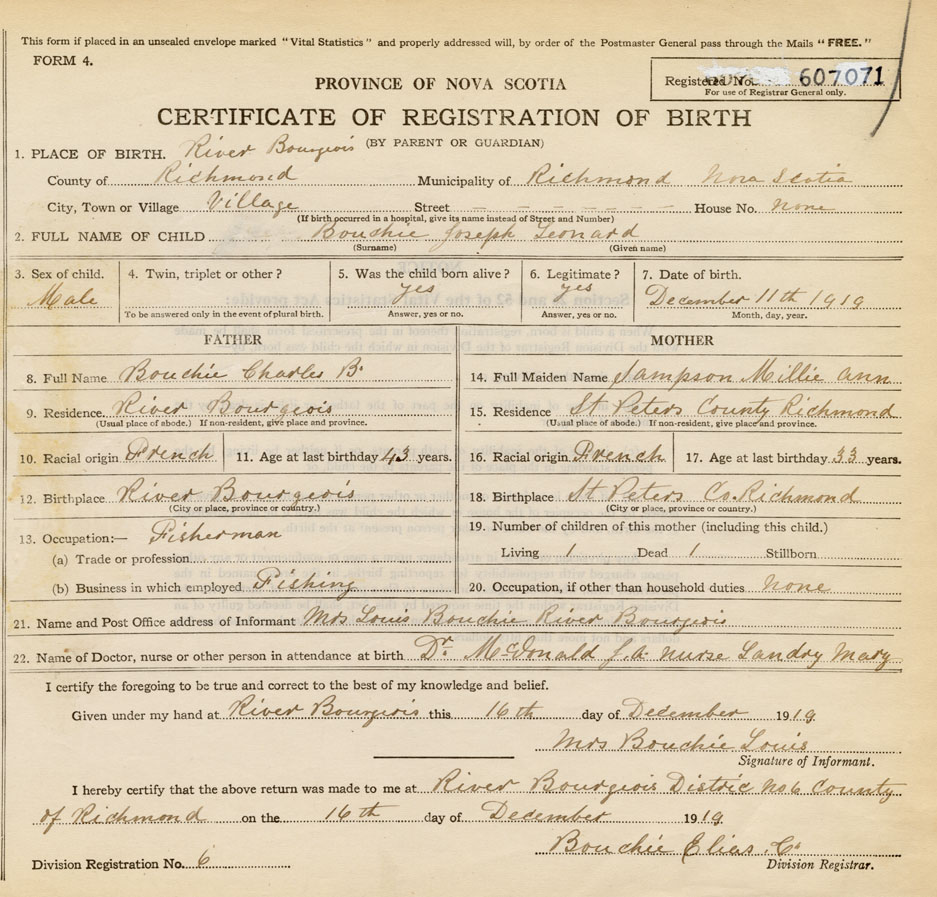 This form if placed in an unsealed envelope marked "Vital Statistics" and properly addressed will, by order of the Postmaster General pass through the Mails "FREE."
FORM 4.
Registered No. 607071
For use of Registrar General only.
PROVINCE OF NOVA SCOTIA
CERTIFICATE OF REGISTRATION OF BIRTH
(BY PARENT OR GUARDIAN)
1. PLACE OF BIRTH. River Bourgeois
County of Richmond Municipality of Richmond Nova Scotia
City, Town or Village Village Street House No. none
(If birth occurred in a hospital, give its name instead of Street and Number)
2. FULL NAME OF CHILD Bouchie Joseph Leonard
(Surname) (Given name)
3. Sex of child. 4. Twin, triplet or other? 5. Was the child born alive? 6. Legitimate? 7. Date of birth.
Male yes yes December 11th 1919
To be answered only in the event of plural birth. Answer, yes or no. Answer, yes or no. Month, day, year.
FATHER MOTHER
8. Full Name Bouchie Charles B. 14. Full Maiden Name Sampson Millie Ann
9. Residence. River Bourgeois 15. Residence St Peters County Richmond
(Usual place of abode.) If non-resident, give place and province. (Usual place of abode.) If non-resident, give place and province.
10. Racial origin French 11. Age at last birthday 43 years. 16. Racial origin French 17. Age at last birthday 33 years.
12. Birthplace River Bourgeois 18. Birthplace St Peters Co. Richmond
(City or place, province or country.) (City or place, province or country.)
13. Occupation:— Fisherman 19. Number of children of this mother (including this child.)
(a) Trade or profession Living 1 Dead 1 Stillborn
(b) Business in which employed Fishing 20. Occupation, if other than household duties none
21. Name and Post Office address of Informant Mrs Louis Bouchie River Bourgeois
22. Name of Doctor, nurse or other person in attendance at birth Dr. McDonald J.A. nurse Landry Mary
I certify the foregoing to be true and correct to the best of my knowledge and belief.
Given under my hand at River Bourgeois this 16th day of December 1919
Mrs Bouchie Louis
Signature of Informant.
I hereby certify that the above return was made to me at River Bourgeois Distric No 6 County
of Richmond on the 16th day of December 1919
Bouchie Elias C.
Division Registration No. 6 Division Registrar.